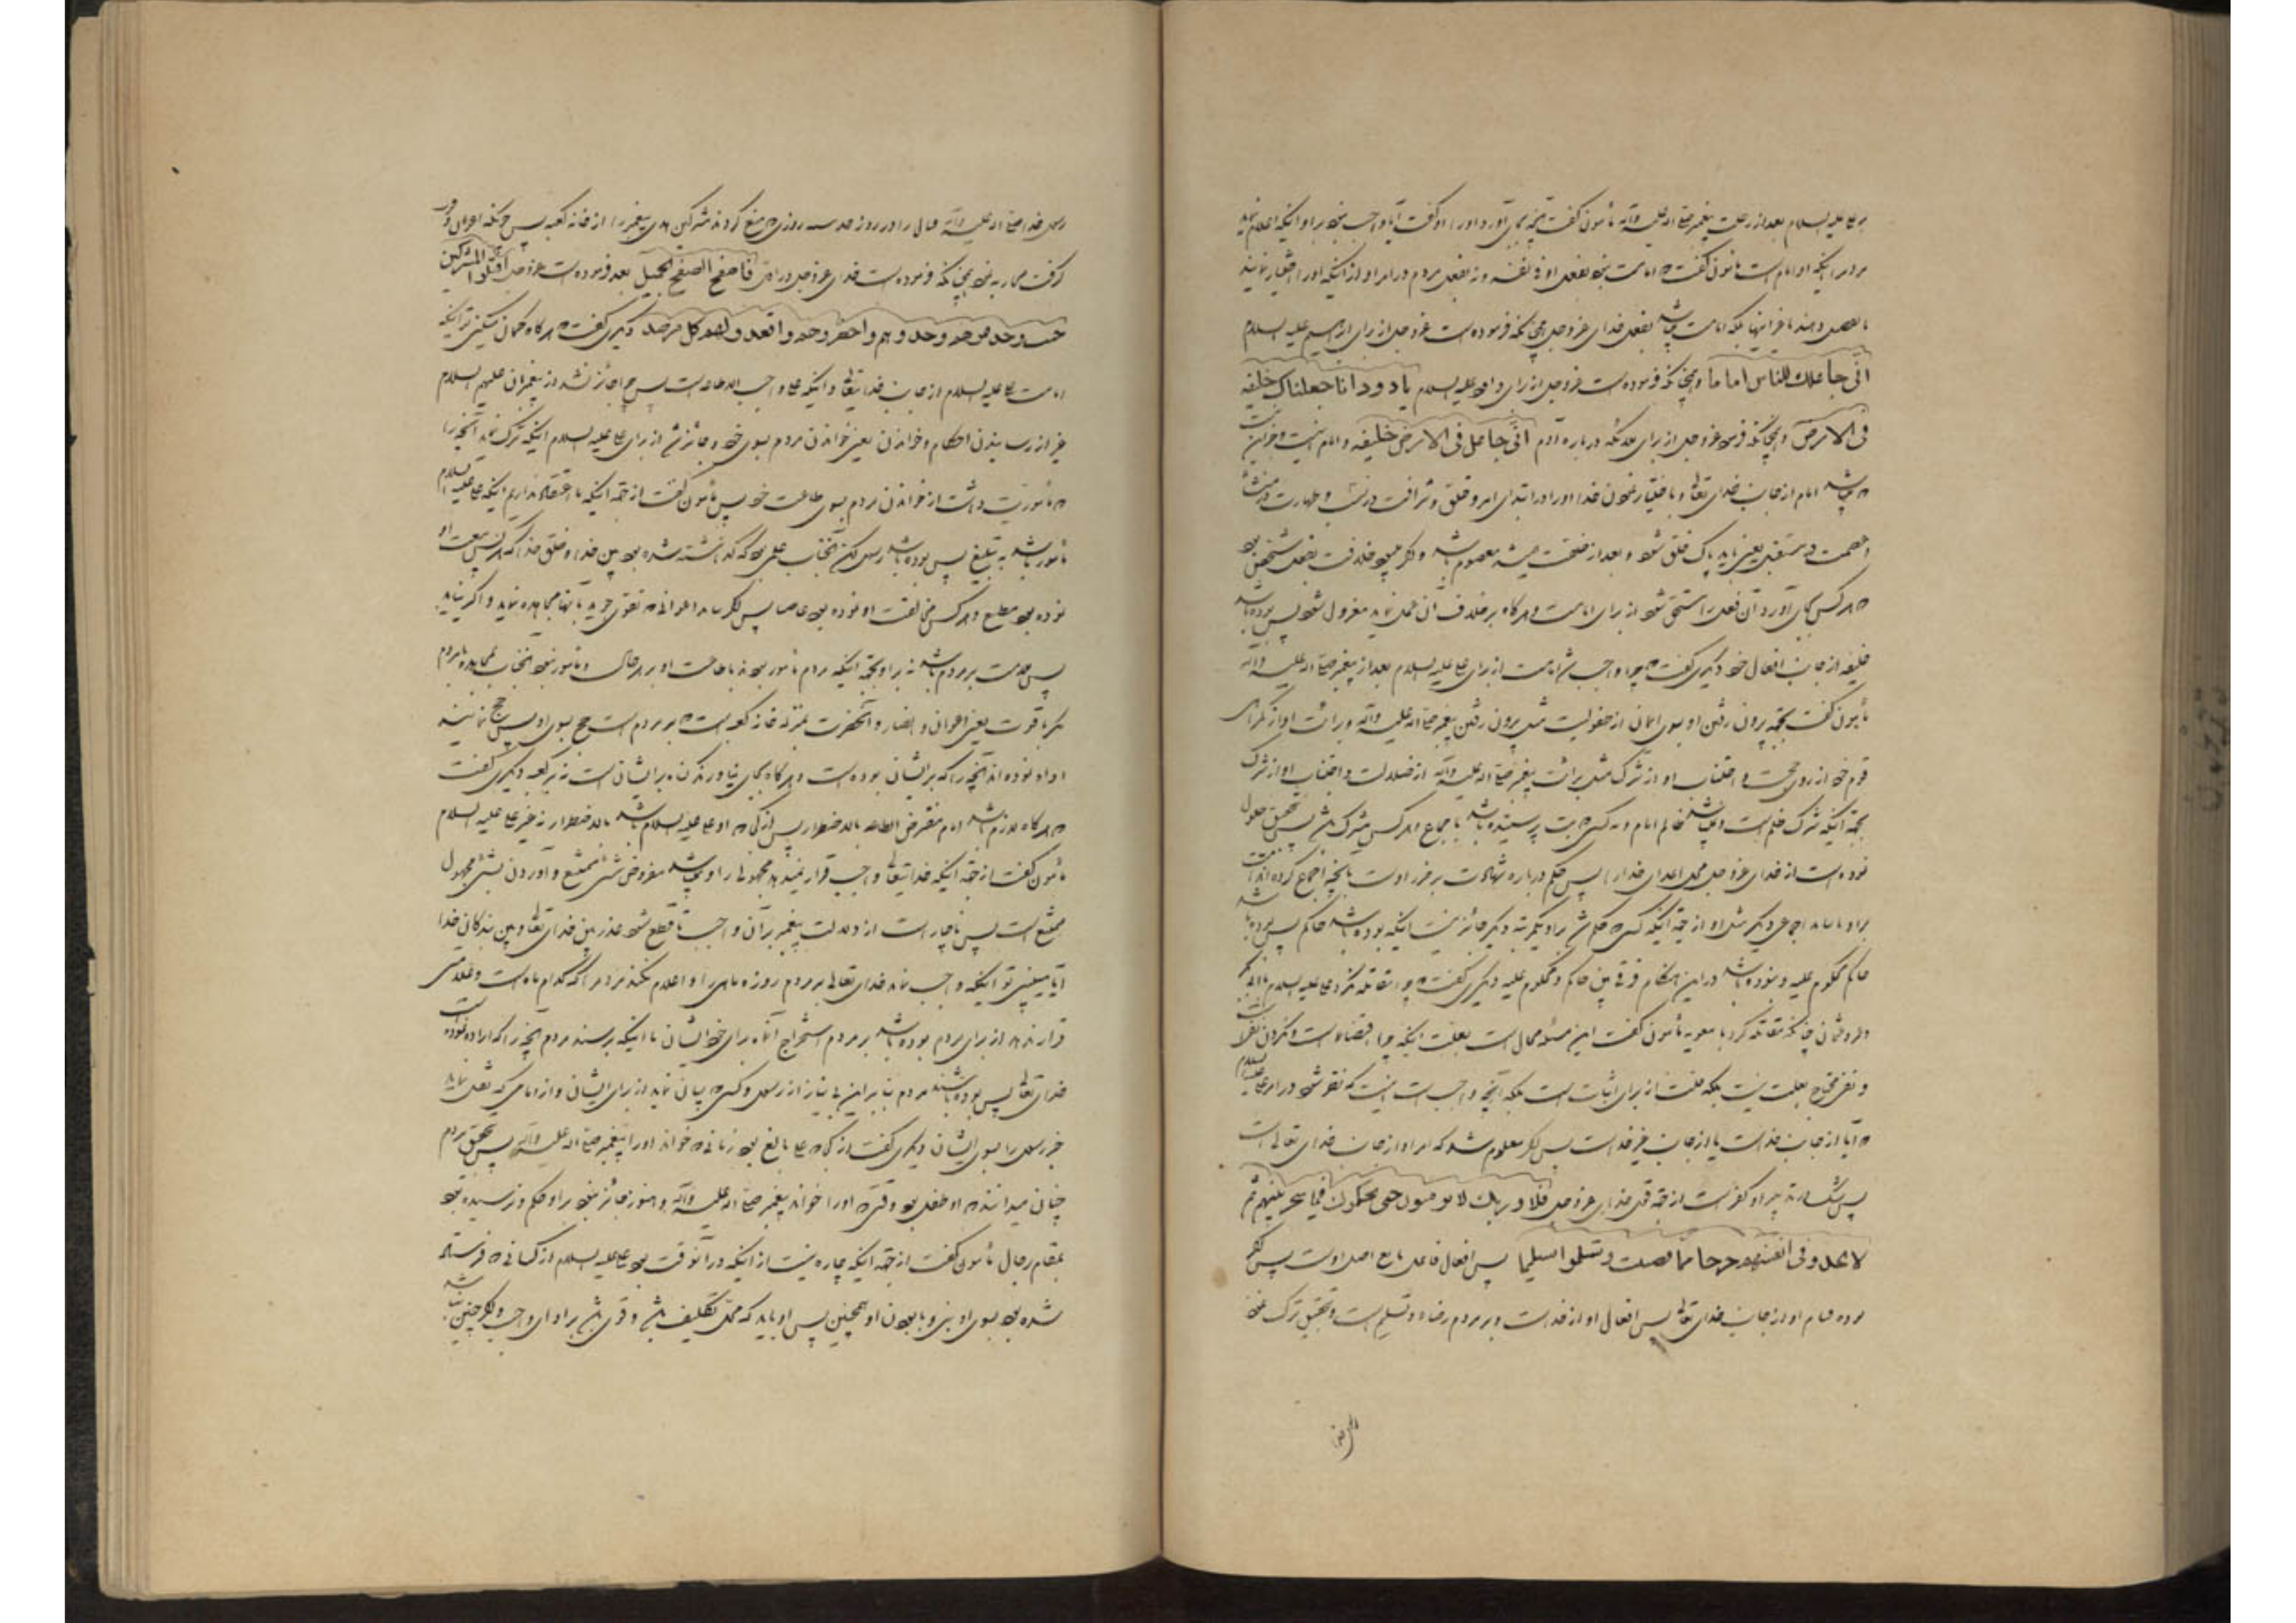 بر علی علیه السلام بعد از رحلت پیغمبر صلی الله علیه وآله مأمون گفت آنچه بجای آورد او را او گفت آیا واجب نبود بر او اینکه اعلام نماید
مردم را اینکه او امام است مأمون گفت که امامت نبود بفعل او فی نفسه و نه بفعل مردم در امر او از اینکه او را اختیار نمایند
یا تفضیل دهند یا غیر اینها بلکه امامت میباشد بفعل خدای عزوجل همچنانکه فرموده است عزوجل از برای ابراهیم علیه السلام
انّی جاعلك للناس اماما و همچنانکه فرموده است عزوجل از برای داود علیه السلام یا داود انا جعلناك خلیفه
فی الارض و همچنانکه فرمود عزوجل از برای ملائکه درباره آدم انّی جاعل فی الارض خلیفه و امام نیست و جز این نیست
که میباشد امام از جانب خدای تعالی و باختیار نمودن خدا او را در ابتدای امر و خلق و شرافت در نسب و طهارت در منشأ
و عصمت در مستقبل یعنی باید پاک خلق شود و بعد از خلقت همیشه معصوم باشد و اگر میبود خلافت بفعل شخص بود
که هر کس بجای آورد آن فعل را مستحق شود از برای امامت و هر گاه بر خلاف آن عمل نماید معزول شود پس بوده باشد
خلیفه از جانب افعال خود دیگری گفت که چرا واجب شد امامت از برای علی علیه السلام بعد از پیغمبر صلی الله علیه وآله
مأمون گفت بجهة بیرون رفتن او بسوی ایمان از طفولیت مثل بیرون رفتن پیغمبر صلی الله علیه وآله و برائت او از گمراهی
قوم خود از روی حجت و اجتناب او از شرک مثل برائت پیغمبر صلی الله علیه وآله از ضلالت و اجتناب او از شرک
بجهة اینکه شرک ظلم است و نمیباشد ظالم امام و نه کسی که بت پرستنده باشد باجماع و هر کس شرک پس بتحقیق حلول
نموده است از خدای عزوجل محل اعدای خدا را پس حکم درباره شهادت بر اوست بآنچه اجماع کرده اند امت
بر او تا بیاید اجماعی دیگر مثل او از جهة اینکه کسی که حکم شد بر او یکمرتبه دیگر جائز نیست اینکه بوده باشد حاکم پس بوده باشد
حاکم محکوم علیه و نبوده باشد در این هنگام فرقی بین حاکم و محکوم علیه دیگری گفت چرا مقاتله نکرد علی علیه السلام با ابوبکر
و عمر و عثمان چنانکه مقاتله کرد با معویه مأمون گفت این مسئله محال است بعلت اینکه چرا اقتضاء است و نکردن نفی است
و نفی محتاج بعلت نیست بلکه علت از برای اثبات است بلکه آنچه واجب است اینست که نظر شود در امر علی علیه السلام
که آیا از جانب خداست یا از جانب غیر خداست پس اگر معلوم شد که امر او از جانب خدای تعالی است
پس شک در تدبیر او کفر است از جهة قول خدای عزوجل فلا وربك لا یومنون حتی یحکموك فیما شجر بینهم ثم
لا یجدوا فی انفسهم حرجا مما قضیت ویسلموا تسلیما پس افعال فاعل تابع اصل اوست پس اگر
بوده قیام او از جانب خدای تعالی پس افعال او از خداست و بر مردم رضاء و تسلیم است و بتحقیق ترک نمود
رسول خدا صلی الله علیه وآله قتال را در روز حدیبیه روزی که منع کردند مشرکین هدی پیغمبر را از خانه کعبه پس چونکه اعوان و زور
گرفت محاربه نمود همچنانکه فرموده است خدای عزوجل در اول فاصفح الصفح الجمیل بعد فرموده است عزوجل اقتلوا المشرکین
حیث وجدتموهم وخذوهم واحصروهم واقعدوا لهم کل مرصد دیگری گفت که هر گاه گمان میکنی تو اینکه
امامت علی علیه السلام از جانب خدایتعالی و اینکه علی واجب الاطاعه است پس چرا جائز نشد از پیغمبران علیهم السلام
غیر از رسانیدن احکام و خواندن یعنی خواندن مردم بسوی خود و جائز شد از برای علی علیه السلام اینکه ترک نماید آنچه را
که مأموریت داشت از خواندن مردم بسوی طاعت خود پس مأمون گفت از جهة اینکه ما اعتقاد نداریم اینکه علی علیه السلام
مأمور باشد به تبلیغ پس بوده باشد رسول لکن آنجناب علمی بود که گذاشته شده بود بین خدا و خلق خدا که هر کس متابعت او
نموده بود مطیع و هر کس مخالفت او نموده بود عاصی پس اگر بیابد اعوانی که تقوی جوید بآنها مجاهده نماید و اگر نیابد
پس ملامت بر مردم باشد نه بر او بجهة اینکه مردم مأمور بودند باطاعت او بر هر حال و مأمور نبود آنجناب بمجاهده با مردم
مگر با قوت یعنی اعوان و انصار و آنحضرت بمنزله خانه کعبه است که بر مردم است حج بسوی او پس چون حج نمایند
اداء نموده اند آنچه را که بر ایشان بوده است و هر گاه بجای نیاورند گناه بر ایشان است نه بر کعبه دیگری گفت
که هر گاه لازم باشد امام مفترض الطاعه بالاضطرار پس از کجا که او علی علیه السلام باشد بالاضطرار نه غیر علی علیه السلام
مأمون گفت از جهة اینکه خدایتعالی واجب قرار نمیدهد مجهولی را و نمیباشد مفروض شیء ممتنع و آوردن بشیء مجهول
ممتنع است پس ناچار است از دلالت پیغمبر بر آن واجب تا قطع شود عذر بین خدای تعالی و بین بندگان خدا
آیا میبینی تو اینکه واجب نماید خدای تعالی بر مردم روزه ماهی را و اعلام نکند مردم را که کدام ماه است و علامتی
قرار ندهد از برای مردم بوده باشد بر مردم استخراج آنماه برای خود ایشان تا اینکه برسند مردم آنچه را که اراده نموده است
خدای تعالی پس بوده باشند مردم بنابراین بی نیاز از رسول و کسی که بیان نماید از برای ایشان و از امامی که نقل نماید
خبر رسول را بسوی ایشان دیگری گفت از کجا که علی بالغ بود زمانی که خواند او را پیغمبر صلی الله علیه وآله پس بتحقیق مردم
چنان میدانند که او طفل بود وقتی که او را خواند پیغمبر صلی الله علیه وآله و هنوز جائز نبود بر او حکم و نرسیده بود
بمقام رجال مأمون گفت از جهة اینکه چاره نیست از اینکه در آنوقت بود علی علیه السلام از کسانی که فرستاده
شده بود بسوی او نبی و تا بودن او همچنین پس او باید که محل تکلیف باشد و قوی باشد بر ادای واجب و اگر چنین نباشد